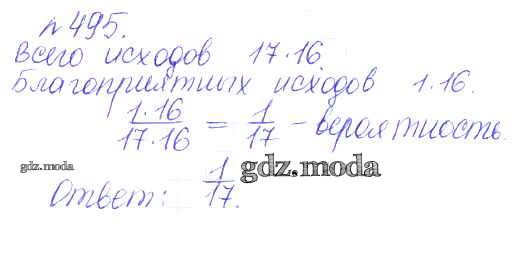 №495.
Всего исходов 17·16.
Благоприятных исходов 1·16.
1·16/17·16 = 1/17 – вероятность.
gdz.moda
gdz.moda
Ответ: 1/17.